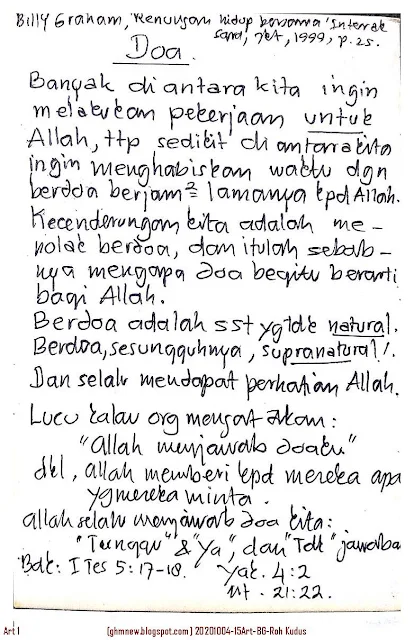 Billy Graham, Renungan hidup bersama 'Interak
sara, Jkt, 1999, p.25.
Doa
Banyak di antara kita ingin
melakukan pekerjaan untuk
Allah, ttp sedikit di antara kita
ingin menghabiskan waktu dgn
berdoa berjam² lamanya kpd Allah.
Kecenderungan kita adalah me-
nolak berdoa, dan itulah sebab-
nya mengapa doa begitu berarti
bagi Allah.
Berdoa adalah sst yg tdk natural.
Berdoa, sesungguhnya, supranatural!.
Dan selalu mendapat perhatian Allah.
Lucu kalau org mengatakan:
"Allah menjawab doaku"
dkl, allah memberi kpd mereka apa
yg mereka minta.
allah selalu menjawab doa kita:
"Tunggu" & "Ya", dan "Tdk" jawaba
Bdk: I Tes 5:17-18. Yak. 4:2
Mt. 21:22.
Art 1 [ghmnew.blogspot.com] 20201004-15Art-BG-Roh Kudus